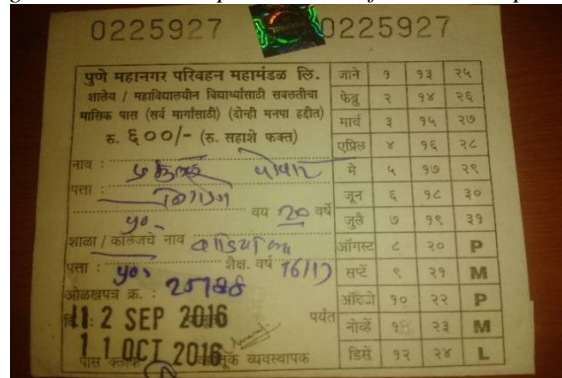 0225927 0225927
पुणे महानगर परिवहन महामंडळ लि.
शालेय / महाविद्यालयीन विद्यार्थ्यांसाठी सवलतीचा
मासिक पास (सर्व मार्गांसाठी) (दोन्ही मनपा हद्दीत)
रु. ६००/- (रु. सहाशे फक्त)
नाव : पोवार
पत्ता :
पु०. वय 20 वर्षे
शाळा / कॉलेजचे नाव
पत्ता : पु०. शैक्ष. वर्ष 16/17
ओळखपत्र क्र. :
12 SEP 2016 पर्यंत
11 OCT 2016
पास क्लार्क वाहतूक व्यवस्थापक
जाने १ १३ २५
फेब्रु २ १४ २६
मार्च ३ १५ २७
एप्रिल ४ १६ २८
मे ५ १७ २९
जून ६ १८ ३०
जुलै ७ १९ ३१
ऑगस्ट ८ २० P
सप्टें ९ २१ M
ऑक्टो १० २२ P
नोव्हें ११ २३ M
डिसें १२ २४ L